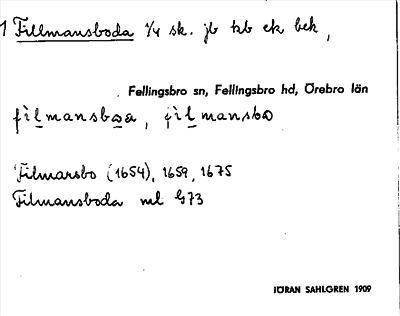 1 Fillmansboda 1/4 sk. jb kb ek bek,
Fellingsbro sn, Fellingsbro hd, Örebro län
filmansboa, filmansbo
Filmansbo (1654), 1659, 1675
Filmansboda ml G73
JÖRAN SAHLGREN 1909